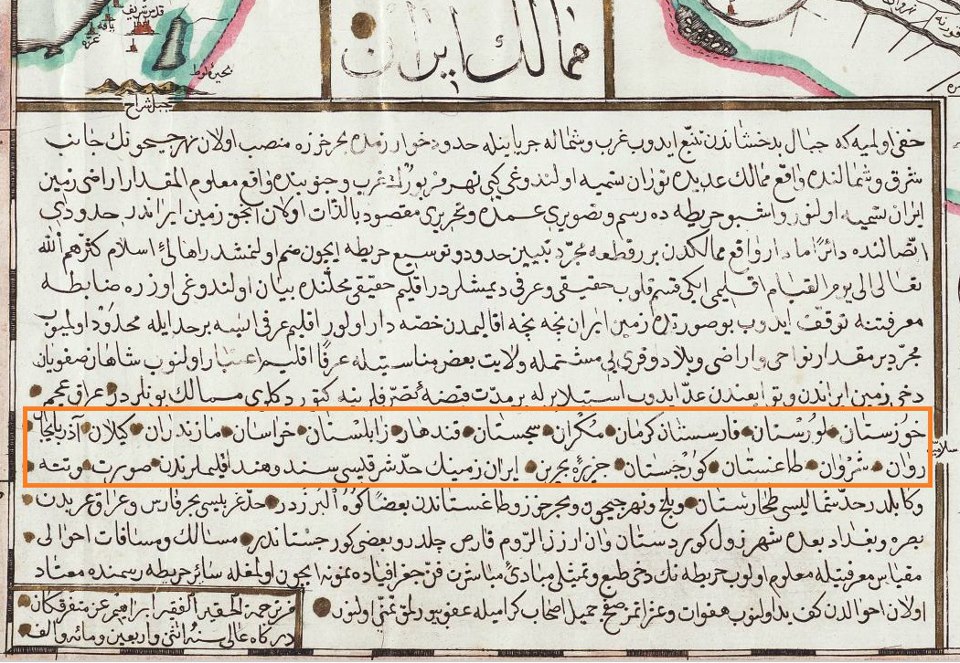 قدس شريف
يافه
غزه
بحيرهٔ لوط
جبل شراح
ممالك ايران
خفى اولميه كه جبال بدخشاندن تتبع ايدوب غرب و شماله جريانيله حدود خوارزمده بحر خزره منصب اولان نهر جيحونك جانب
شرق و شمالنده واقع ممالك عديده توران تسميه اولندوغى كبى نهر مزبورك غرب و جنوبنده واقع معلوم المقدار اراضى زمين
ايران تسميه اولنور و اشبو خريطه ده رسم و تصويرى عمده و تحريرى مقصود بالذات اولان انجق زمين ايراندر حدودى
اتصالنده دائرًا مادار واقع ممالكدن بر قطعه مجرد تبيين حدود و توسيع خريطه ايچون ضم اولنمشدر اهالئ اسلام كثرهم الله
تعالى الى يوم القيام اقليمى ايكى قسم قلوب حقيقى و عرفى ديمشلردر اقليم حقيقى محلنده بيان اولندوغى اوزره ضابطه
معرفتنه توقف ايدوب بو صورتده زمين ايران نچه نچه اقاليمدن حصه دار اولور اقليم عرفى ايسه بر حد ايله محدود اولميوب
مجرد بر مقدار نواحى و اراضى و بلاد و قرى يى مشتمله ولايت بعض مناسبتيله عرفا اقليم اعتبار اولنوب شاهان صفويان
دخى زمين ايراندن و توابعندن عد ايدوب استيلالر له بر مدت قبضهٔ تصرفلرينه كتوردكلرى ممالك بونلردر عراق عجم
خوزستان لورستان فارسستان كرمان مكران سجستان قندهار زابلستان خراسان مازندران كيلان آذربايجان
روان شروان طاغستان كورجستان جزيرهٔ بحرين ايران زمينك حد شرقيسى سند و هند اقليملرندن صوبرت و تته
و كابلدر حد شماليسى طخارستان و بلخ و نهر جيحون و بحر خزر و طاغستاندن بعضا كوه البرزدر حد غربيسى بحر فارس و عراق عربدن
بصره و بغداد بعده شهرزول كوردستان وان ارزن الروم قارص چلدر و بعضى كورجستاندر مسالك و مسافات احوالى
مقياس معرفتيله معلوم اولوب خريطه نك دخى طبع و تمثيل مبادئ مباشرت فن جغرافياده نمونه ايچون اولمغله سائر خريطه رسمنده معتاد
اولان احوالدن كف يد اولنوب هفوات و عثراتمز صفح جميل اصحاب كرام ايله عفو بيورلمق تمنى اولنور
من ترجمة الحقير الفقير ابراهيم عن متفرقكان
دركاه عالى سنه اثنى و اربعين و مائه و الف